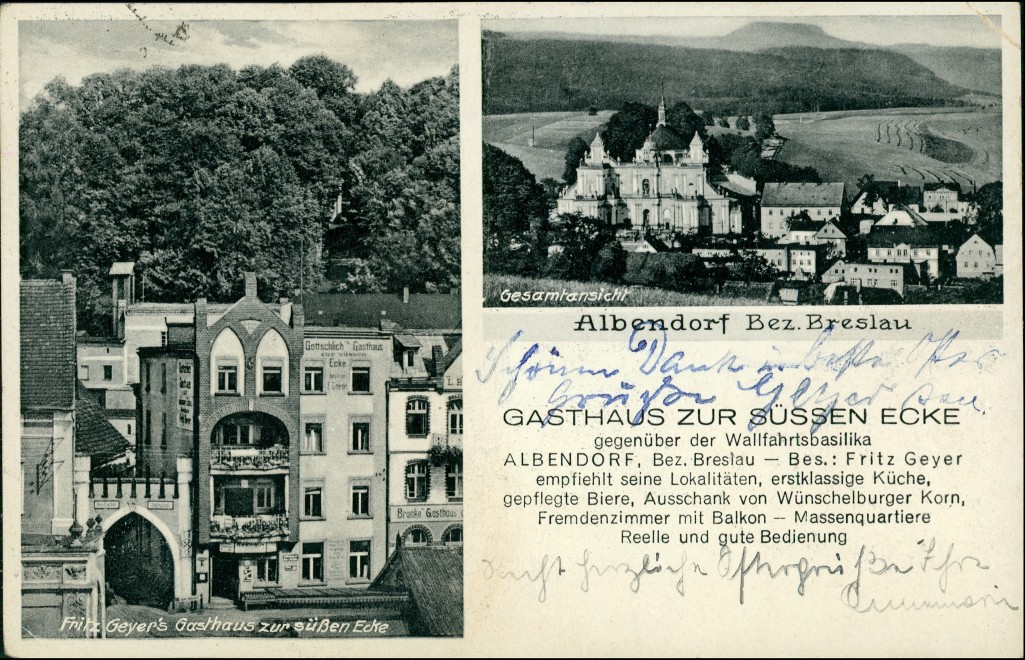 Gottschlich's Gasthaus
ZUR SÜSSEN
Ecke
L.B
Branke Gasthaus
Fritz Geyer's Gasthaus zur süßen Ecke
Gesamtansicht
Albendorf Bez. Breslau
Schönen Dank u. beste Oster
Grüße Geyer
GASTHAUS ZUR SÜSSEN ECKE
gegenüber der Wallfahrtsbasilika
ALBENDORF, Bez. Breslau — Bes.: Fritz Geyer
empfiehlt seine Lokalitäten, erstklassige Küche,
gepflegte Biere, Ausschank von Wünschelburger Korn,
Fremdenzimmer mit Balkon — Massenquartiere
Reelle und gute Bedienung
Recht herzliche Ostergrüße Ihre